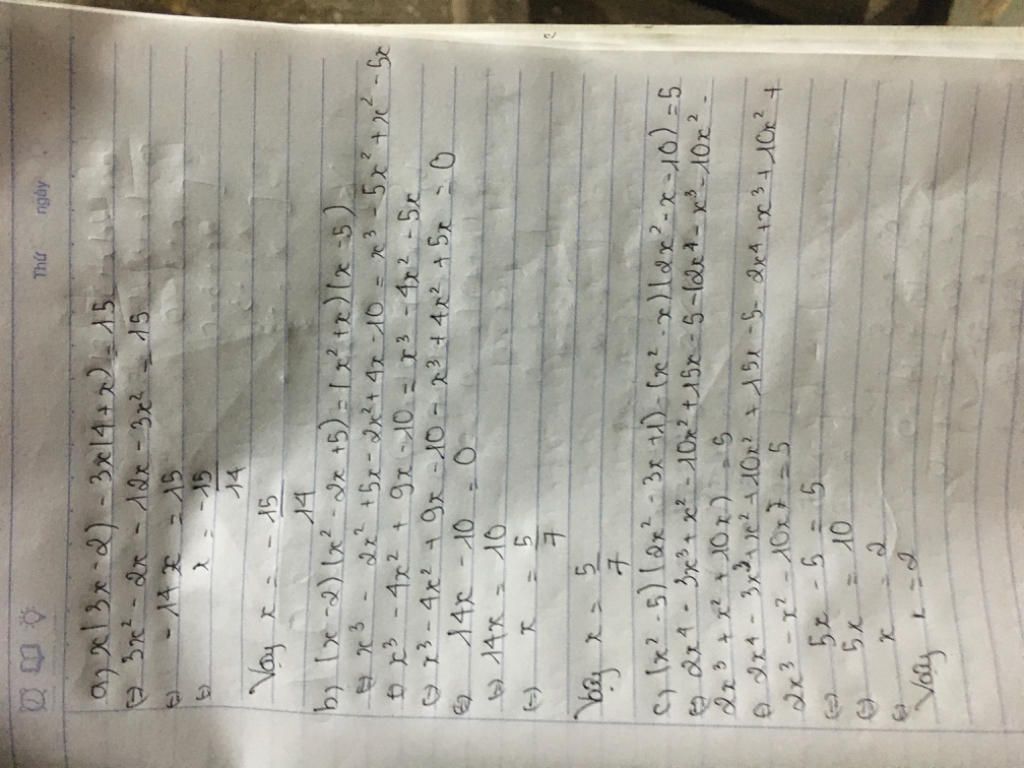 Thứ ngày
a, x(3x - 2) - 3x(4 + x) = 15
⇔ 3x² - 2x - 12x - 3x² = 15
⇔ - 14x = 15
⇔ x = -15/14
Vậy x = - 15/14
b, (x - 2)(x² - 2x + 5) = (x² + x)(x - 5)
⇔ x³ - 2x² + 5x - 2x² + 4x - 10 = x³ - 5x² + x² - 5x
⇔ x³ - 4x² + 9x - 10 = x³ - 4x² - 5x
⇔ x³ - 4x² + 9x - 10 - x³ + 4x² + 5x = 0
⇔ 14x - 10 = 0
⇔ 14x = 10
⇔ x = 5/7
Vậy x = 5/7
c, (x² - 5)(2x² - 3x + 1) - (x² - x)(2x² - x - 10) = 5
⇔ 2x⁴ - 3x³ + x² - 10x² + 15x - 5 - (2x⁴ - x³ - 10x² -
2x³ + x² + 10x) = 5
⇔ 2x⁴ - 3x³ + x² - 10x² + 15x - 5 - 2x⁴ + x³ + 10x² +
2x³ - x² - 10x = 5
⇔ 5x - 5 = 5
⇔ 5x = 10
⇔ x = 2
Vậy x = 2